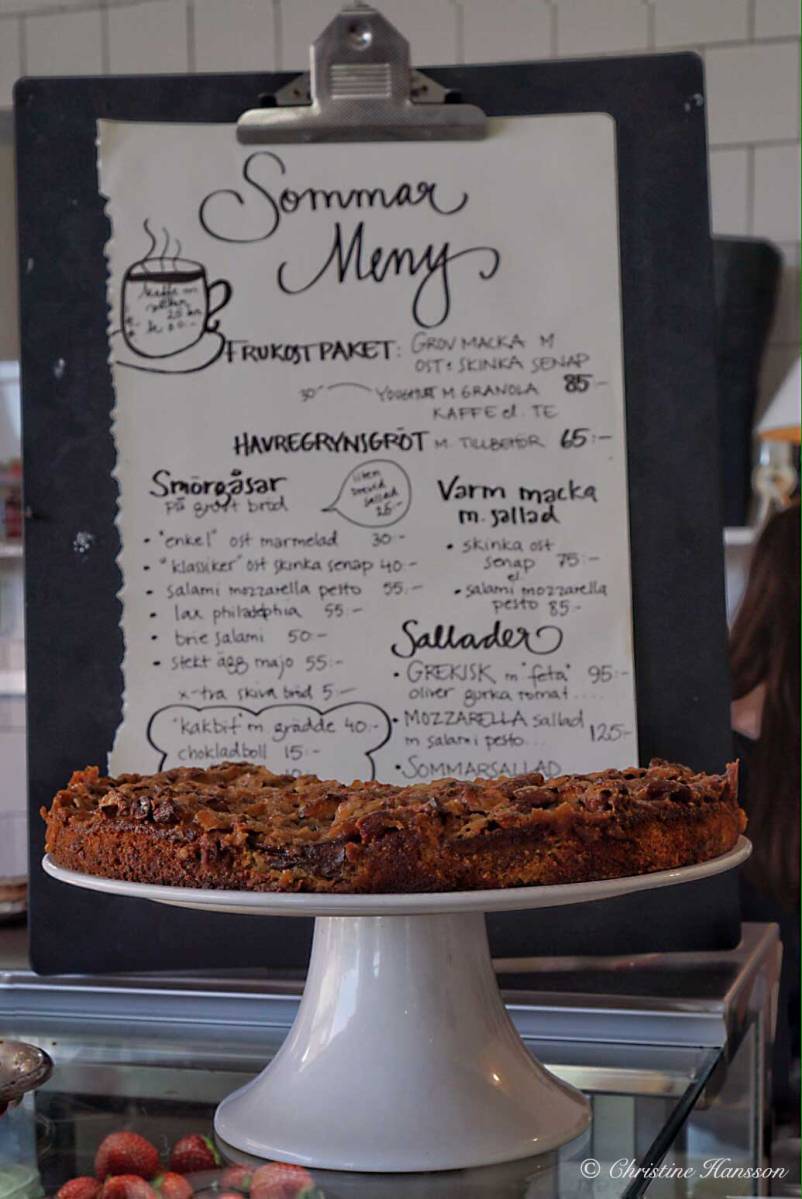 Sommar
Meny
kaffe
FRUKOSTPAKET: GROV MACKA M
OST & SKINKA SENAP
YOUGHURT M. GRANOLA 85:-
KAFFE el. TE
HAVREGRYNSGRÖT M. TILLBEHÖR 65:-
Smörgåsar
på grovt bröd
liten
sallad
25:-
• "enkel" ost marmelad 30:-
• "klassiker" ost skinka senap 40:-
• salami mozzarella pesto 55:-
• lax philadelphia 55:-
• brie salami 50:-
• stekt ägg majo 55:-
x-tra skiva bröd 5:-
"kakbit" m grädde 40:-
chokladboll 15:-
Varm macka
m. sallad
• skinka ost
senap 75:-
el.
• salami mozzarella
pesto 85:-
Sallader
• GREKISK m "feta" 95:-
oliver gurka tomat....
• MOZZARELLA sallad
m salami pesto... 125:-
• SOMMARSALLAD
© Christine Hansson